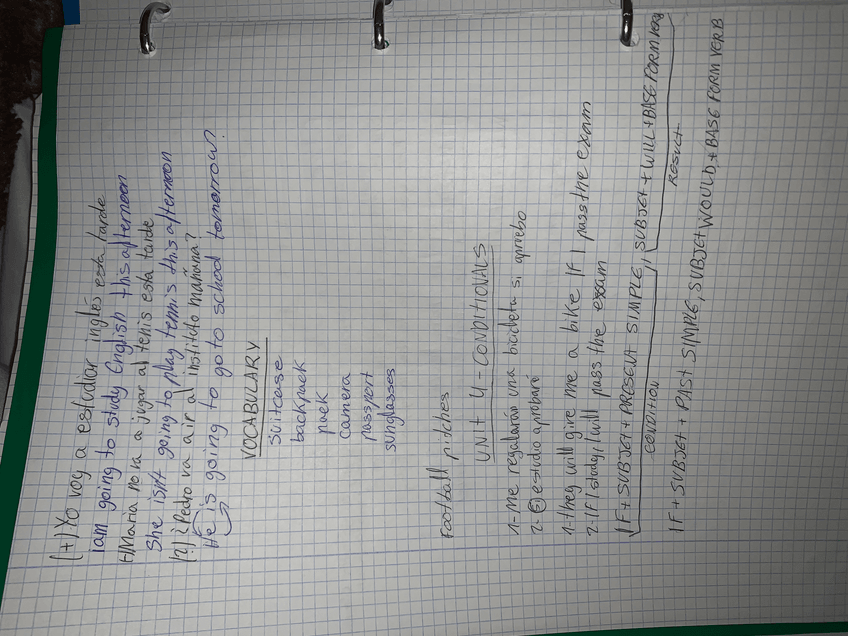 (+) Yo voy a estudiar inglés esta tarde
I am going to study English this afternoon
(-) Maria no va a jugar al tenis esta tarde
She isn't going to play tennis this afternoon
(?) ¿Pedro va a ir al instituto mañana?
He is going to go to school tomorrow?
VOCABULARY
suitcase
backpack
pack
camera
passport
sunglasses
Football pitches
UNIT 4 - CONDITIONALS
1- Me regalarán una bicicleta si apruebo
2- Si estudio aprobaré
1- they will give me a bike If I pass the exam
2- If I study, I will pass the exam
IF + SUBJET + PRESENT SIMPLE, SUBJET + WILL + BASE FORM VERB
CONDITION RESULT
IF + SUBJET + PAST SIMPLE, SUBJET WOULD + BASE FORM VERB